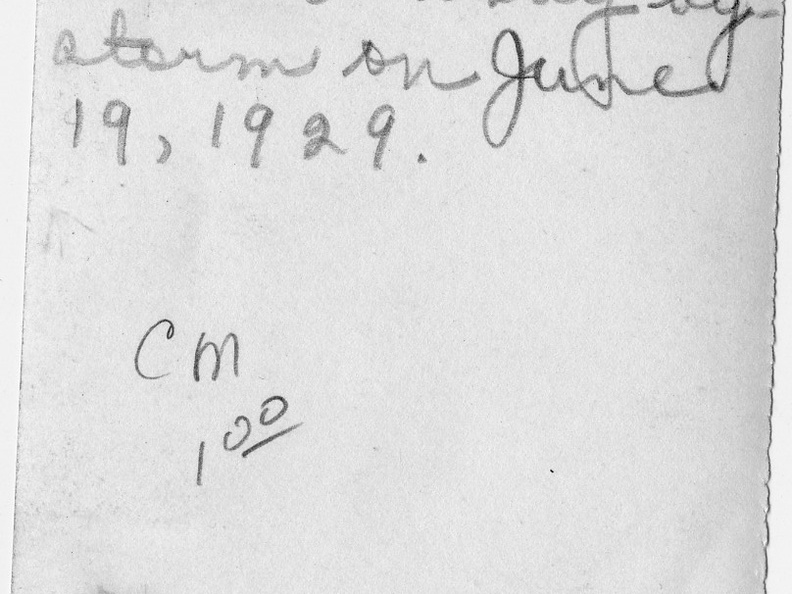 by
storm on June
19, 1929.
CM
1.00